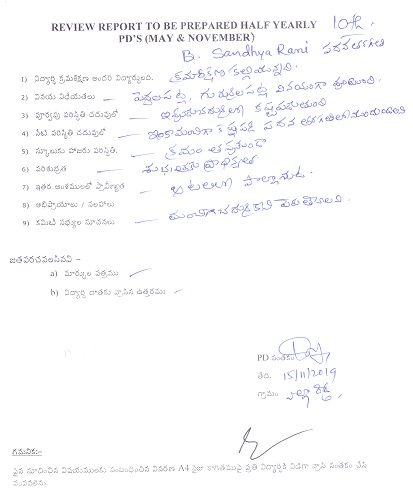 REVIEW REPORT TO BE PREPARED HALF YEARLY
PD'S (MAY & NOVEMBER)
10th
B. Sandhya Rani పదవ తరగతి
1) విద్యార్థి క్రమశిక్షణ అందరి విద్యార్థులది. క్రమశిక్షణ కల్గియున్నది.
2) వినయ విధేయతలు – పెద్దలపట్ల, గురువులపట్ల వినయంగా వుంటుంది.
3) పూర్వపు పరిస్థితి చదువులో – కష్టపడుతుంది
4) నేటి పరిస్థితి చదువులో – ఇంకా మంచిగా కష్టపడి పదవ తరగతిలో
5) స్కూలుకు హాజరు పరిస్థితి. – క్రమం తప్పకుండా
6) పరిశుభ్రత – శుభ్రత
7) ఇతర అంశములలో ప్రావీణ్యత – ఆటలలో పాల్గొనుట
8) అభిప్రాయాలు / సలహాలు
9) కమిటీ సభ్యుల సూచనలు – మంచిగా చదువుకొని పేరు తేవాలి
జతపరచవలసినవి –
a) మార్కుల పత్రము
b) విద్యార్థి దాతకు వ్రాసిన ఉత్తరము
PD సంతకం
తేది. 15/11/2019
గ్రామం
గమనిక:-
పైన సూచించిన విషయములకు సంబంధించిన వివరణ A4 సైజు కాగితముపై ప్రతి విద్యార్థికి విడిగా వ్రాసి సంతకం చేసి
పంపవలెను.